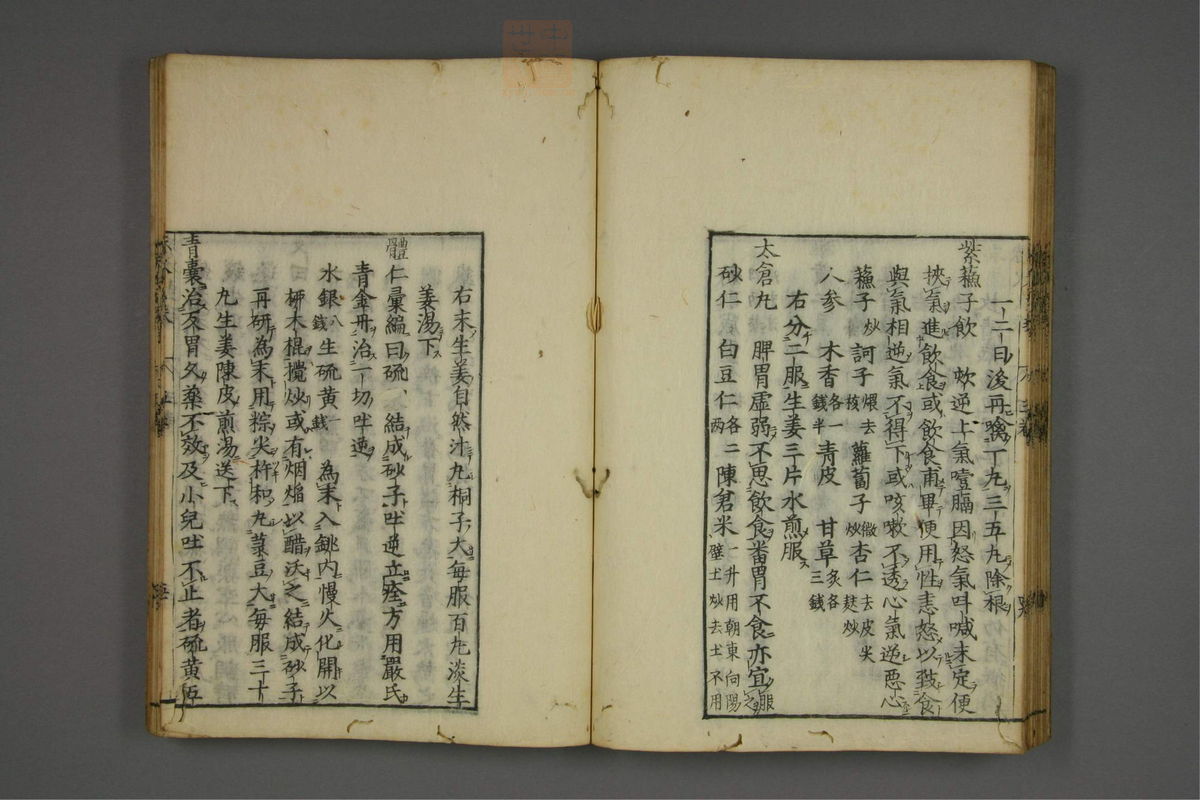 一二日後再噙丁九三五九除根
紫蘓子飲 欬逆上氣噎膈因怒氣呌喊未定便
挾氣進飲食或飲食甫畢便用性恚怒以致食
與氣相逆氣不得下或咳嗽不透心氣逆惡心
蘓子炒 訶子煨去核 蘿蔔子微炒 杏仁去皮尖麸炒
人参 木香各一錢半 青皮 甘草炙各三錢
右分二服生姜三片水煎服
太倉丸 脾胃虛弱不思飲食畨胃不食亦宜服之
砂仁 白豆仁各二两 陳倉米一升用朝東向陽壁土炒去土不用
右末生姜自然汁丸桐子大毎服百丸淡生
姜湯下
體仁彙編曰硫結成砂子吐逆立痊方用嚴氏
青金丹治一切吐逆
水銀八錢 生硫黄一錢 為末入銚内慢火化開以
栁木棍攪炒或有烟焰以醋沃之結成砂子
再研為末用粽尖杵和丸菉豆大毎服三十
九生姜陳皮煎湯送下
青囊治反胃久藥不效及小兒吐不止者硫黄